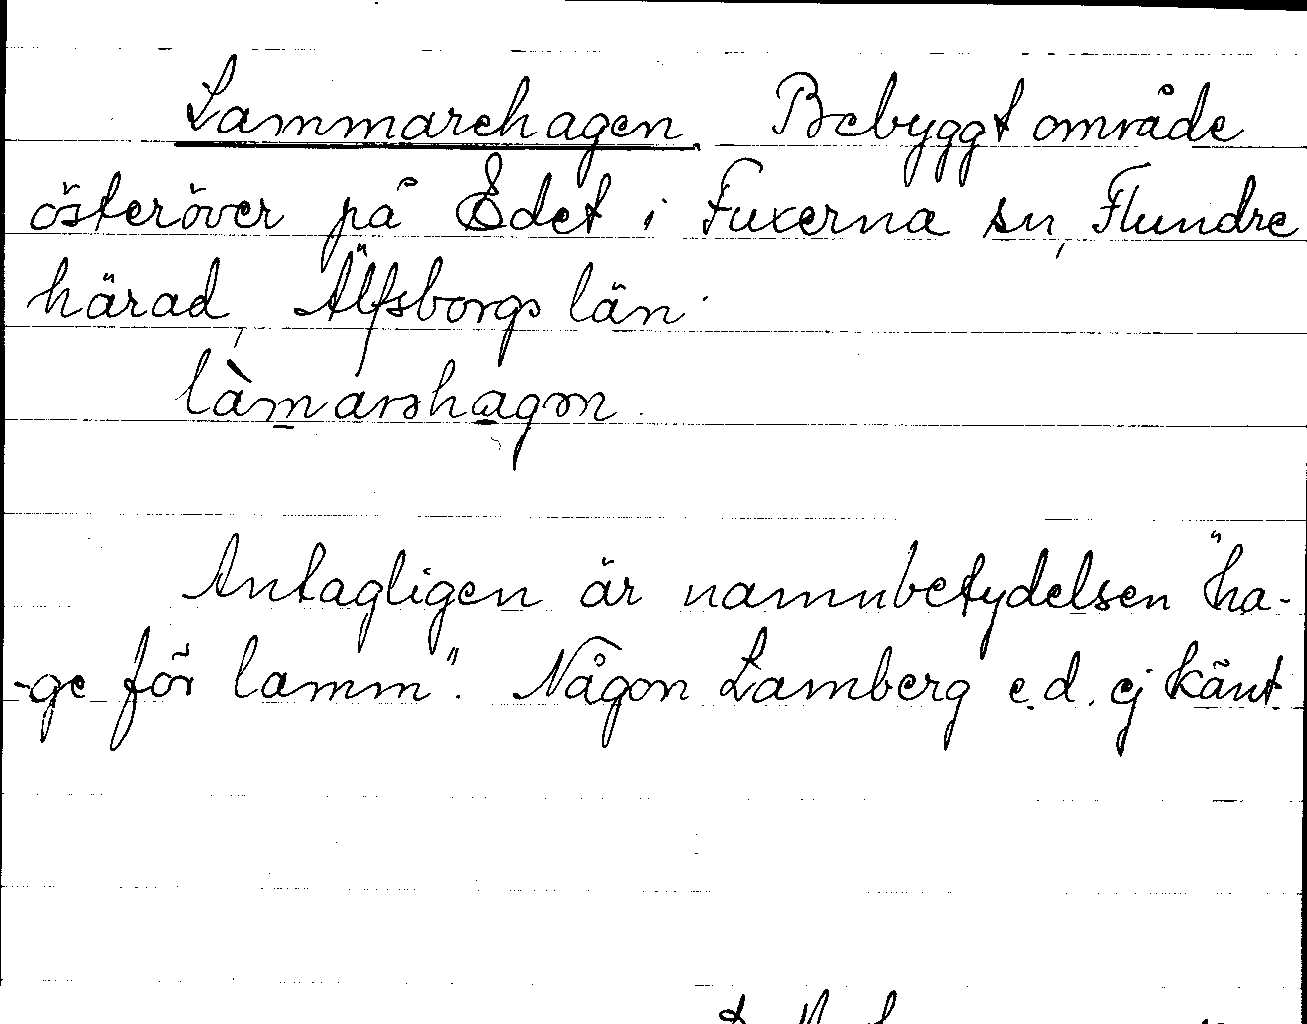 Lammarehagen. Bebyggt område
österöver på Edet i Fuxerna sn, Flundre
härad, Älfsborgs län.
làmarəhagən.
Antagligen är namnbetydelsen "ha-
-ge för lamm". Någon Lamberg e.d. ej känt.